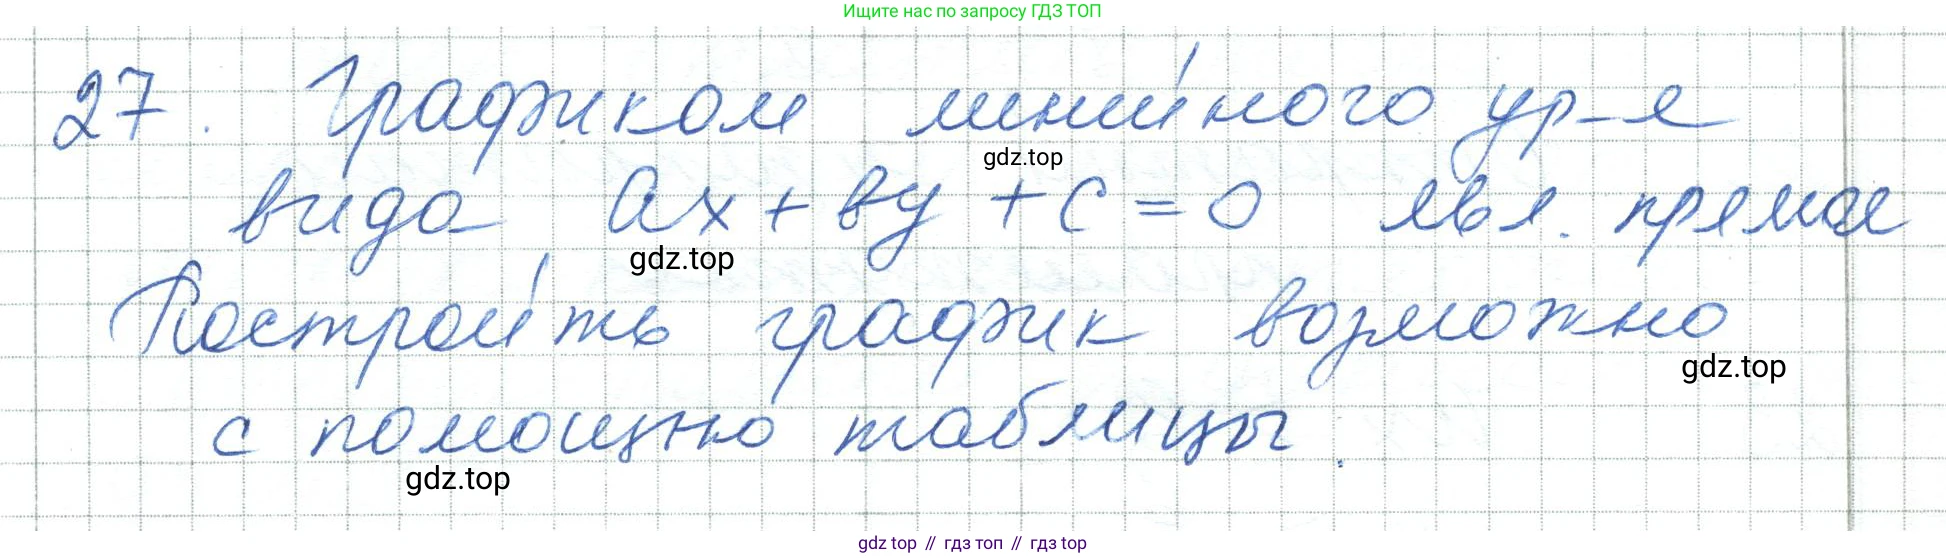 Ищите нас по запросу ГДЗ ТОП
27. Графиком линейного ур-я
gdz.top
вида ax + by + c = 0 явл. прямая
gdz.top
Построить график возможно
gdz.top
с помощью таблицы.
gdz.top
gdz top // гдз топ // гдз top